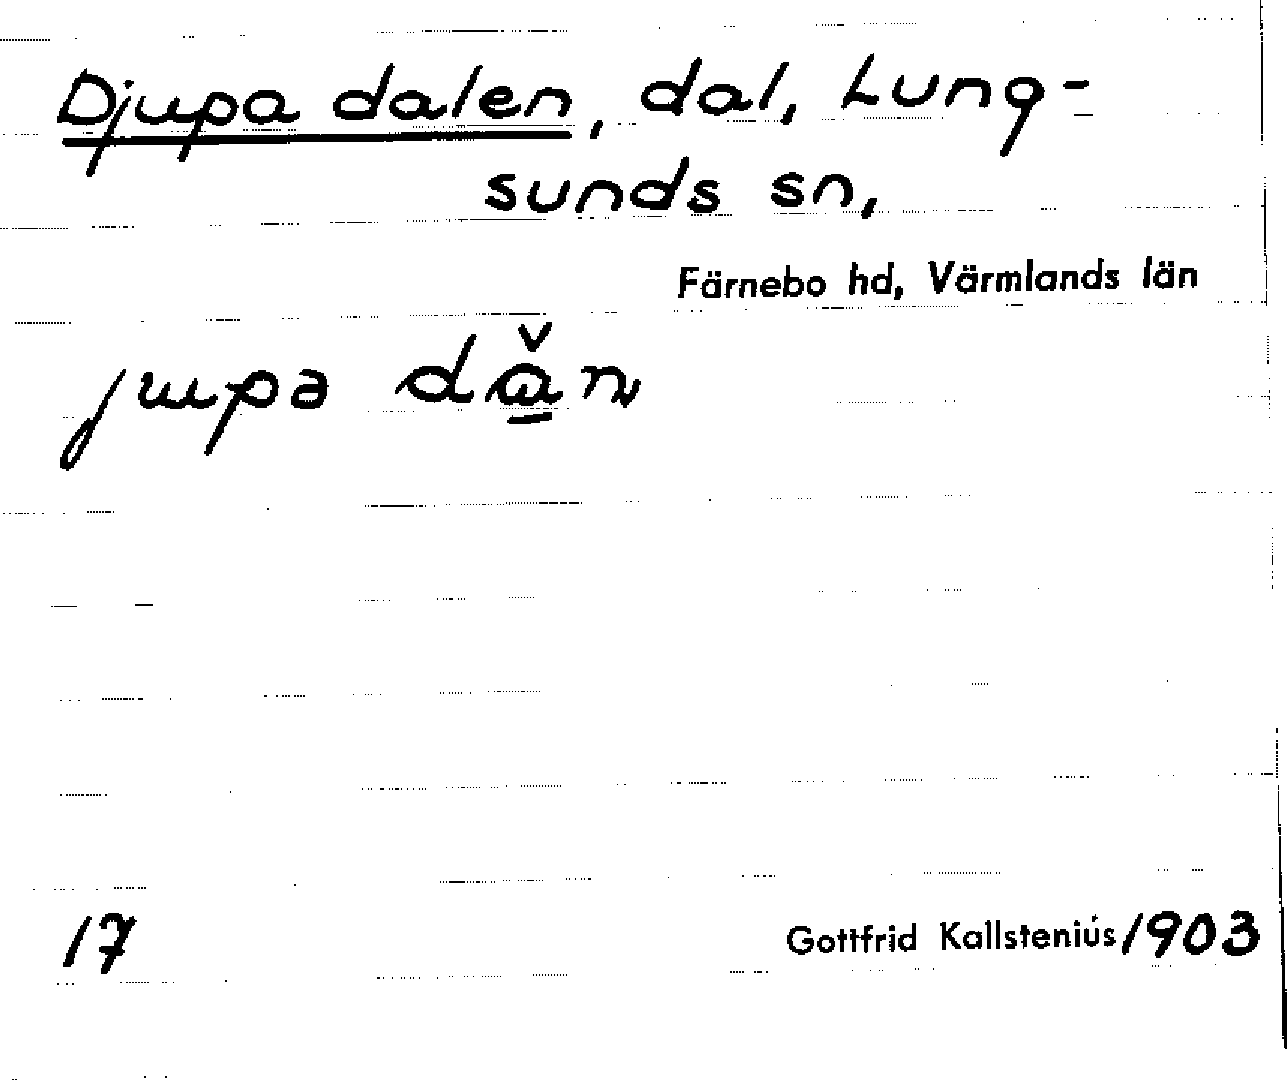 Djupa dalen, dal, Lung-
sunds sn,
Färnebo hd, Värmlands län
jɯpa dǎ̱n
17
Gottfrid Kallstenius 1903